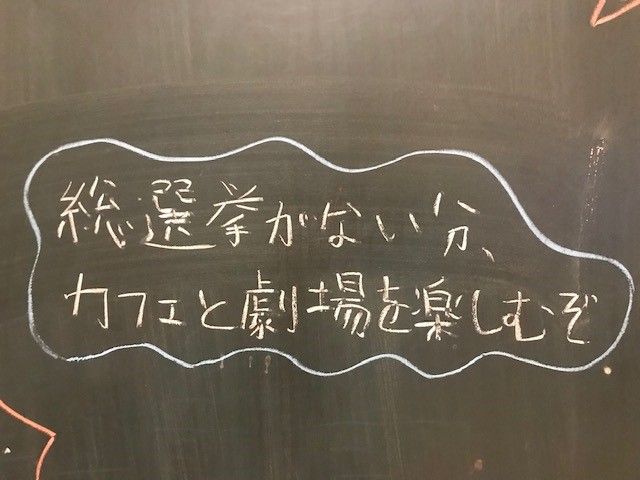 総選挙がない分、
カフェと劇場を楽しむぞ